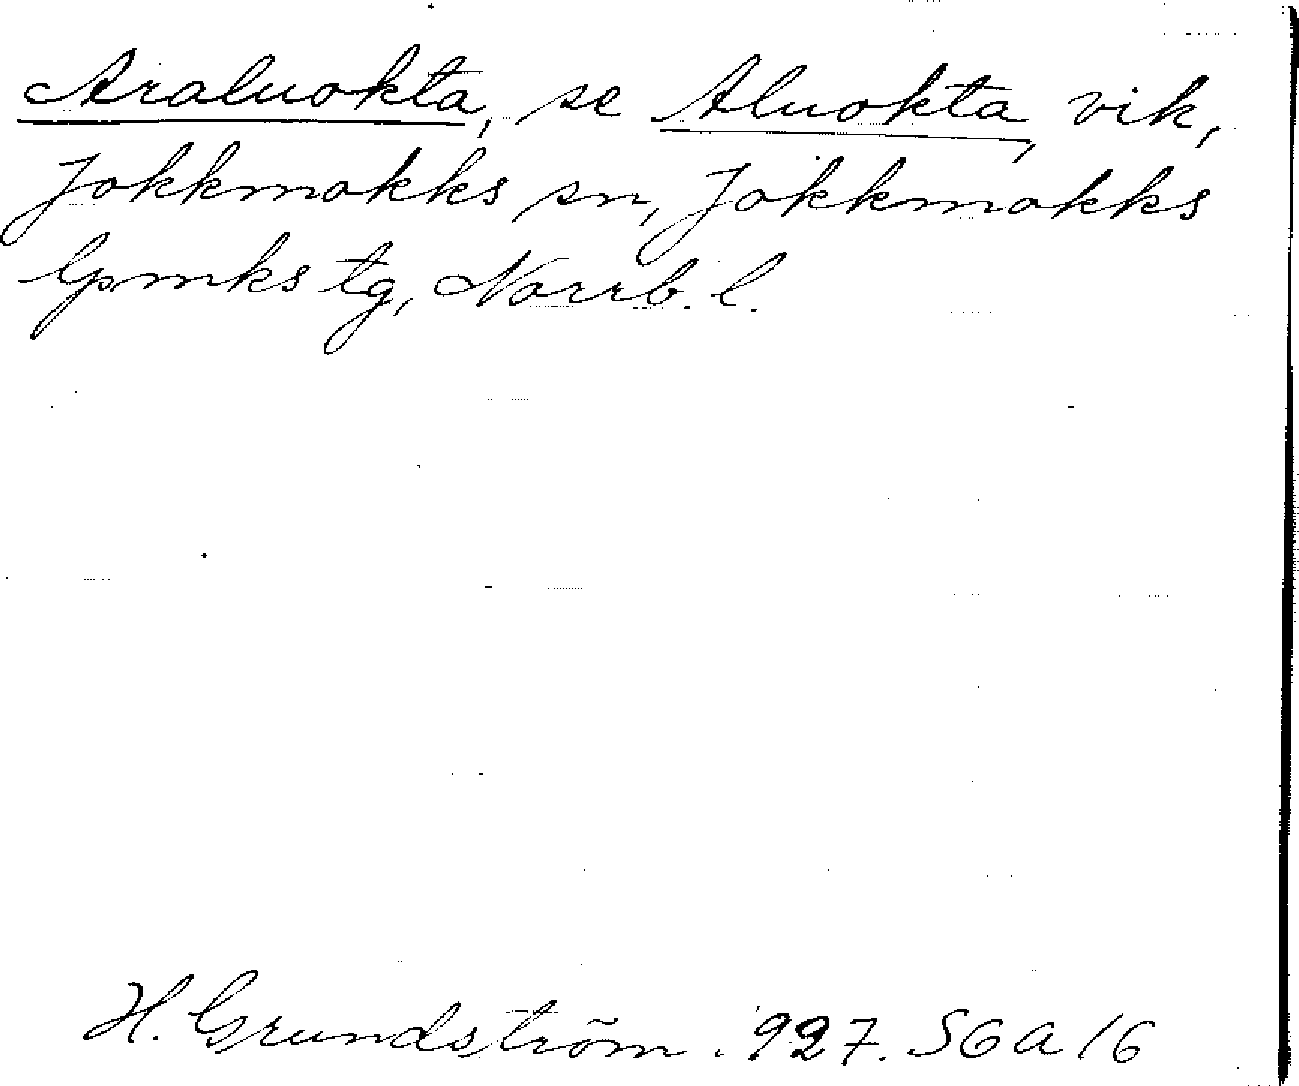 Araluokta, se Aluokta, vik,
Jokkmokks sn, Jokkmokks
lpmks tg, Norrb. l.
H. Grundström. 927. SGA 16